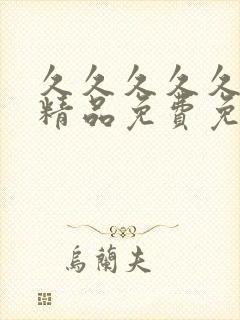 久久久久久
精品免费免
烏蘭夫